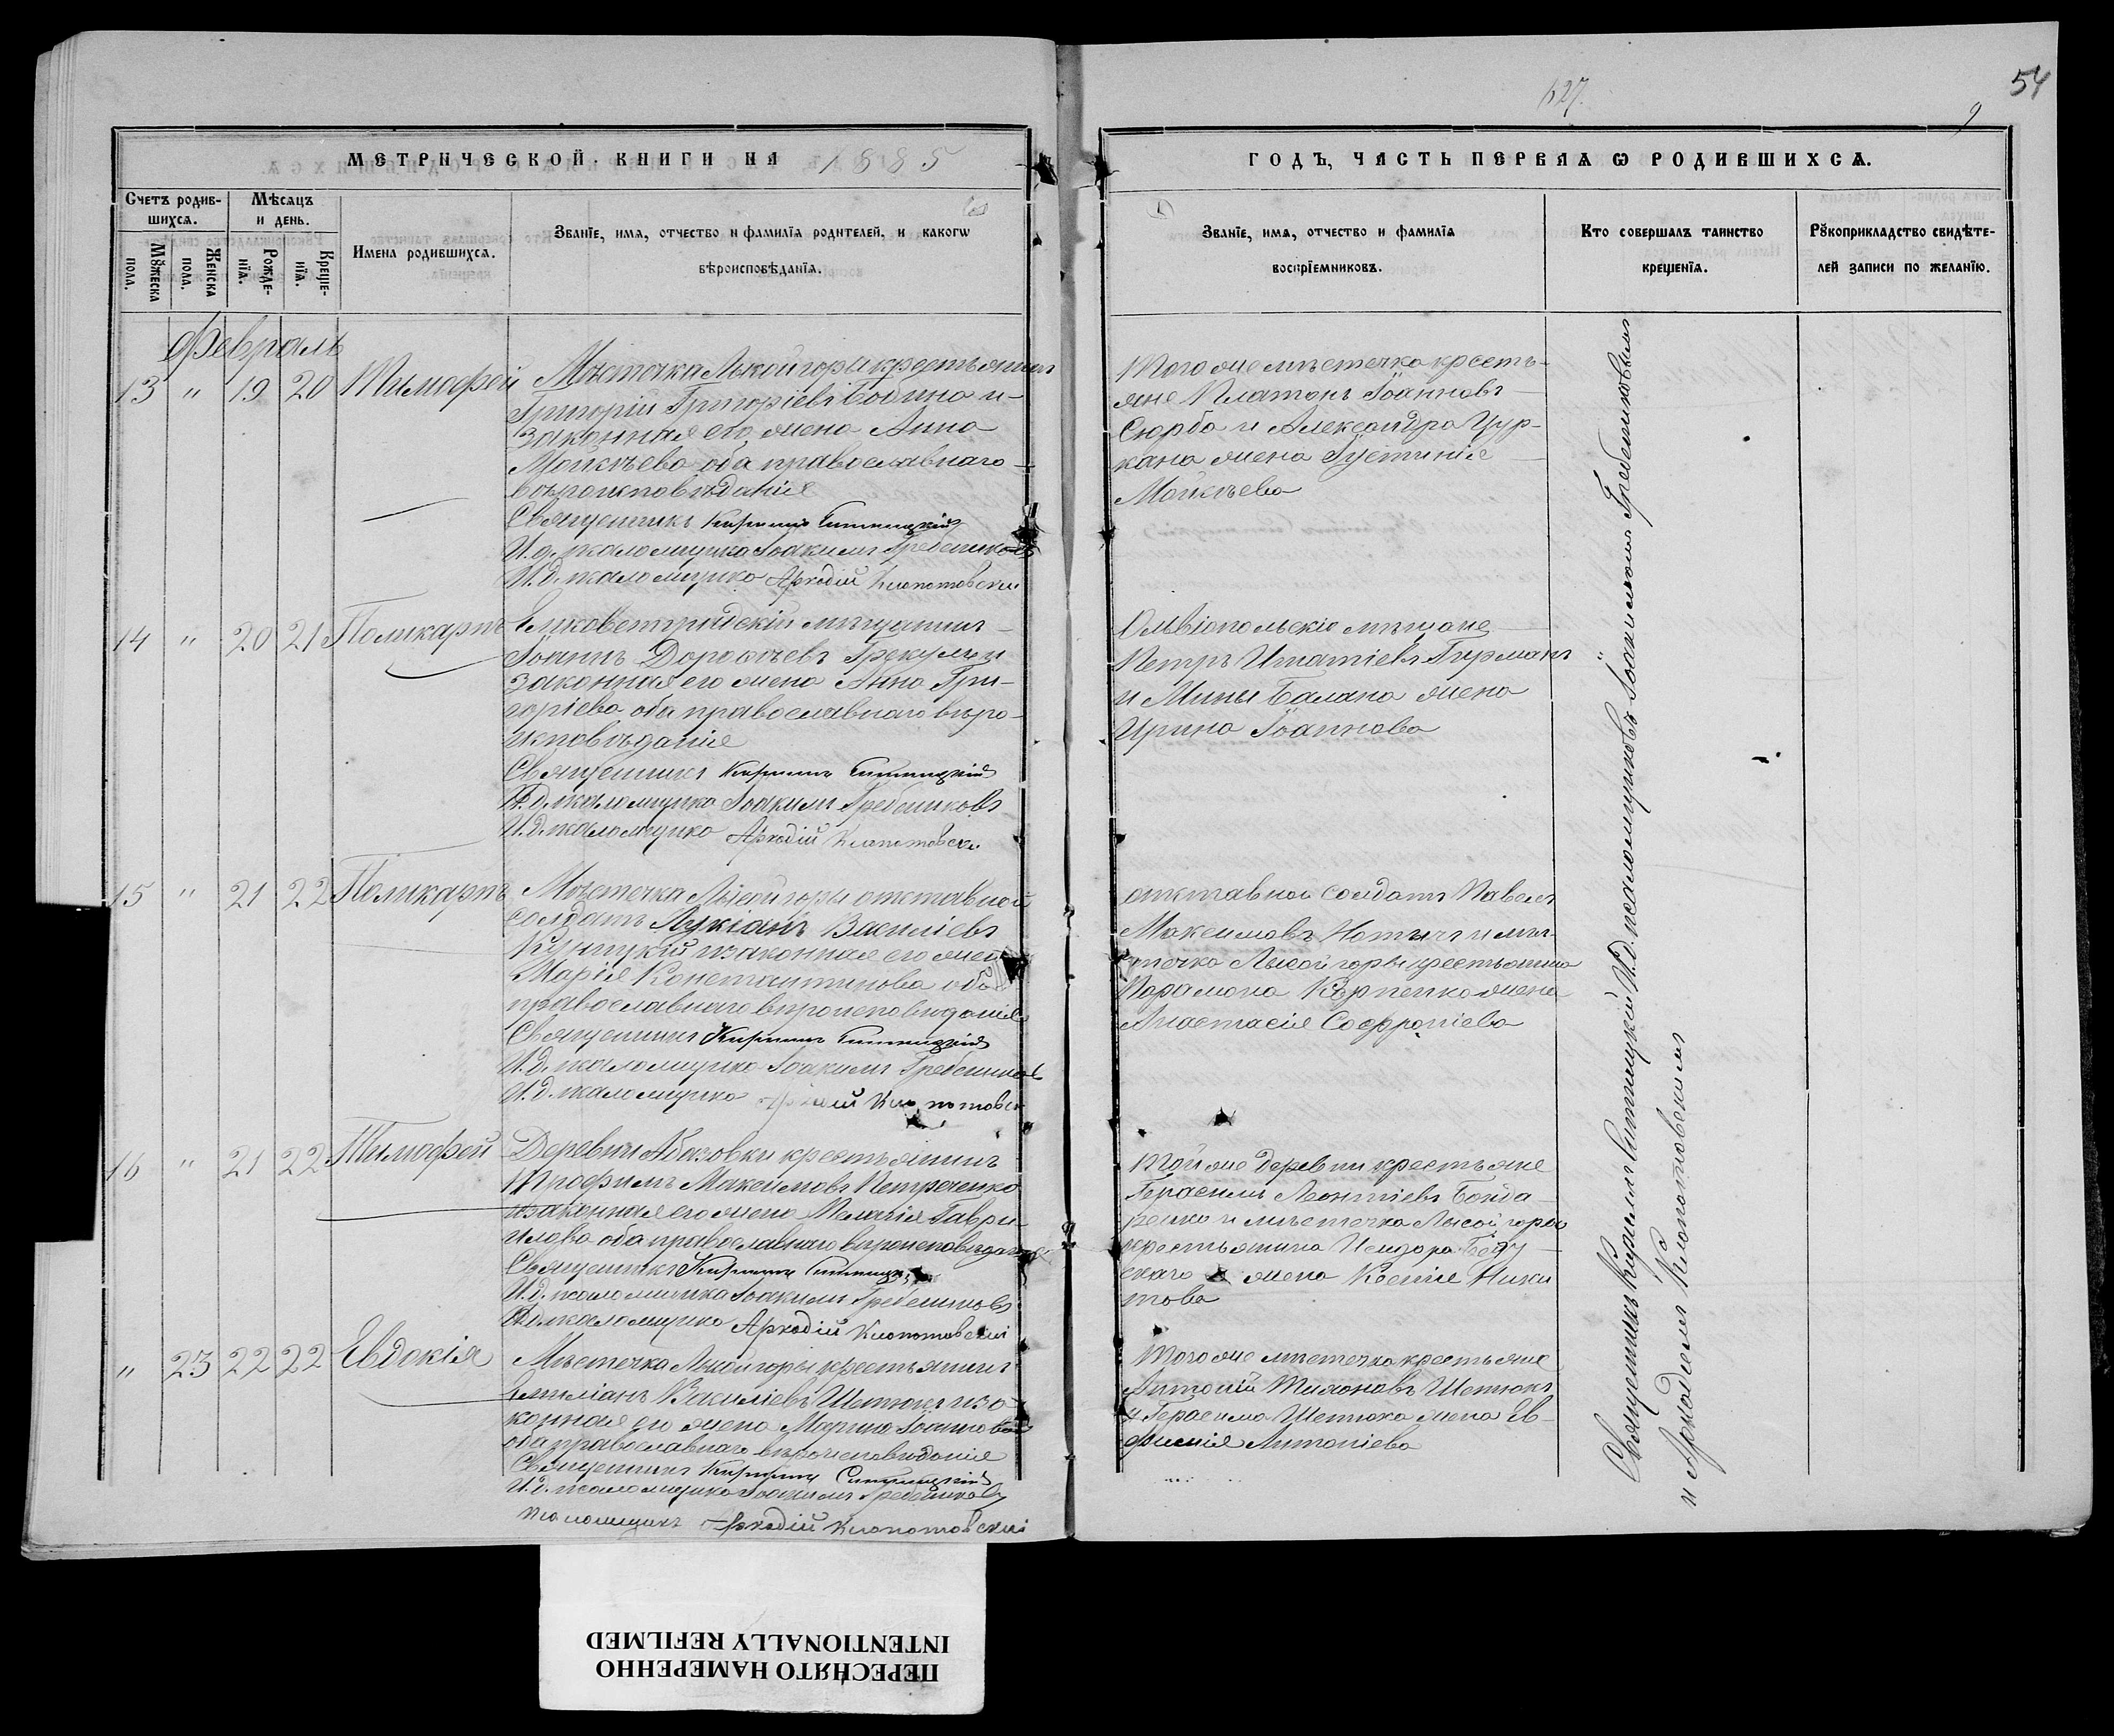 54
627.
9
МЕТРИЧЕСКОЙ КНИГИ НА 1885
ГОДЪ, ЧАСТЬ ПЕРВАЯ Ѡ РОДИВШИХСѦ.
Счетъ родив-
шихсѧ.
Мѣсѧцъ
и день.
Мꙋжеска
пола.
Женска
пола.
Рожде-
нїѧ.
Креще-
нїѧ.
Имена родившихсѧ.
Званїе, имѧ, отчество и фамилїѧ родителей, и какогѡ
вѣроисповѣданїѧ.
Званїе, имѧ, отчество и фамилїѧ
воспрїемниковъ.
Кто совершалъ таинство
крещенїѧ.
Рꙋкоприкладство свидѣте-
лей записи по желанїю.
Февраль
13 " 19 20 Тимофей
Мѣстечка Лысой горы крестьянинъ
Григорій Григоріевъ и
законная его жена Анна
Моисѣева оба православнаго
вѣроисповѣданія
Священникъ Кириллъ Синицкій
И.д. псаломщика Іоакимъ Гребенниковъ
И.д. псаломщика Аркадій Клопотовскій
Того же мѣстечка кресть-
яне Платонъ Іоанновъ
Сюрба и Александра Цур-
кана жена Іустинія
Моисѣева
14 " 20 21 Поликарпъ
Елисаветградскій мѣщанинъ
Іоаннъ Дороѳеевъ Грекулъ и
законная его жена Анна Гри-
горіева оба православнаго вѣро-
исповѣданія
Священникъ Кириллъ Синицкій
И.д. псаломщика Іоакимъ Гребенниковъ
И.д. псаломщика Аркадій Клопотовскій
Ольвіопольскіе мѣщане
Петръ Игнатіевъ Гирманъ
и Мины Балана жена
Ирина Іоаннова
15 " 21 22 Поликарпъ
Мѣстечка Лысой горы отставной
солдатъ Лукіанъ Василіевъ
Куницкій и законная его жена
Марія Константинова оба
православнаго вѣроисповѣданія
Священникъ Кириллъ Синицкій
И.д. псаломщика Іоакимъ Гребенниковъ
И.д. псаломщика Аркадій Клопотовскій
отставной солдатъ Павелъ
Максимовъ и мѣ-
стечка Лысой горы крестьянина
Парамона Карпенко жена
Анастасія Софроніева
16 " 21 22 Тимофей
Деревни Абазовки крестьянинъ
Трофимъ Максимовъ Петреченко
и законная его жена Меланія Гаври-
илова оба православнаго вѣроисповѣданія
Священникъ Кириллъ Синицкій
И.д. псаломщика Іоакимъ Гребенниковъ
И.д. псаломщика Аркадій Клопотовскій
Той же деревни крестьяне
Герасимъ Леонтіевъ Бонда-
ренко и мѣстечка Лысой горы
крестьянина Исидора
скаго жена Ксенія Ники-
това
" 23 22 22 Евдокія
Мѣстечка Лысой горы крестьянинъ
Емиліанъ Василіевъ Шетюкъ и за-
конная его жена Марина Іоаннова
оба православнаго вѣроисповѣданія
Священникъ Кириллъ Синицкій
И.д. псаломщика Іоакимъ Гребенниковъ
псаломщикъ Аркадій Клопотовскій
Того же мѣстечка крестьяне
Антоній Тихоновъ Шетюкъ
и Герасима Шетюка жена Ев-
фимія Антоніева
Священникъ Кириллъ Синицкій И.д. псаломщиковъ Іоакимомъ Гребенниковымъ
и Аркадіемъ Клопотовскимъ
ПЕРЕСНЯТО НАМЕРЕННО
INTENTIONALLY REFILMED